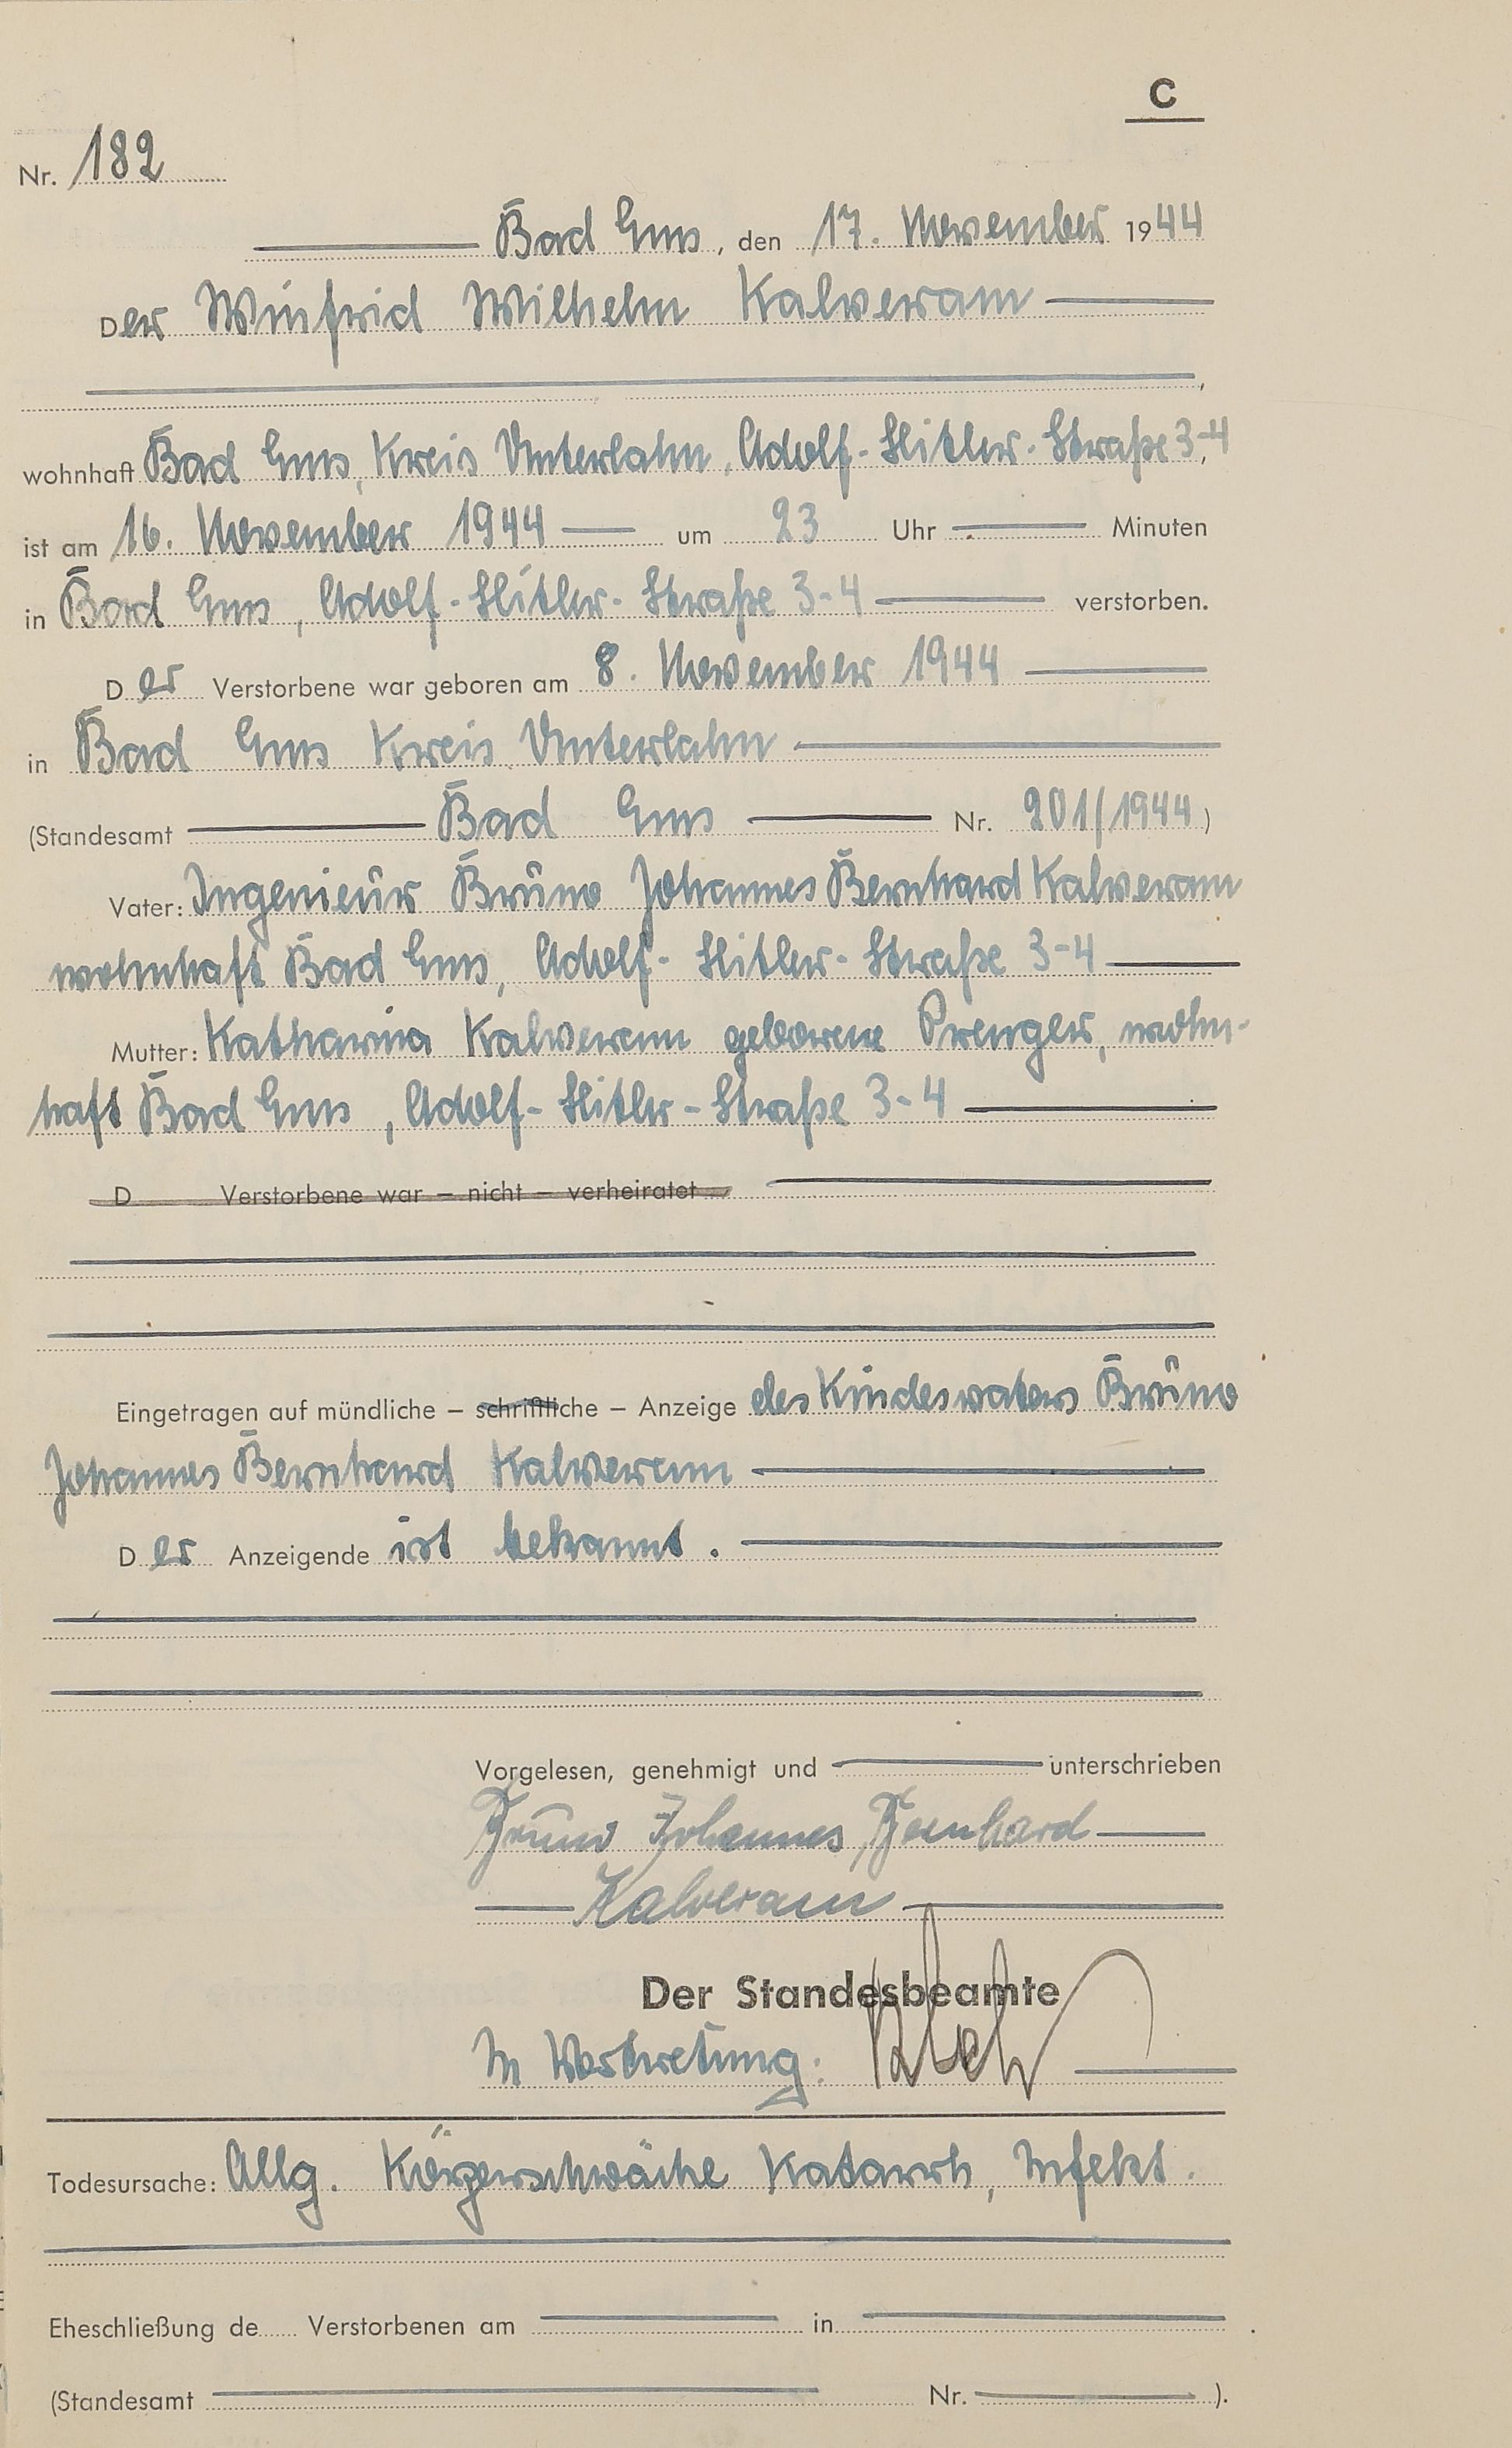 C
Nr. 182
Bad Ems, den 17. November 1944
Der Winfrid Wilhelm Kalveram
,
wohnhaft Bad Ems, Kreis Unterlahn, Adolf-Hitler-Straße 3-4,
ist am 16. November 1944 um 23 Uhr Minuten
in Bad Ems, Adolf-Hitler-Straße 3-4 verstorben.
Der Verstorbene war geboren am 8. November 1944
in Bad Ems Kreis Unterlahn
(Standesamt Bad Ems Nr. 201/1944)
Vater: Ingenieur Bruno Johannes Bernhard Kalveram
wohnhaft Bad Ems, Adolf-Hitler-Straße 3-4
Mutter: Katharina Kalveram geborene Prenger, wohn-
haft Bad Ems, Adolf-Hitler-Straße 3-4
D Verstorbene war – nicht – verheiratet
Eingetragen auf mündliche – schriftliche – Anzeige des Kindesvaters Bruno
Johannes Bernhard Kalveram
Der Anzeigende ist bekannt.
Vorgelesen, genehmigt und unterschrieben
Bruno Johannes Bernhard
Kalveram
Der Standesbeamte
In Vertretung:
Todesursache: Allg. Körperschwäche Katarrh, Infekt.
Eheschließung de Verstorbenen am in .
(Standesamt Nr. ).